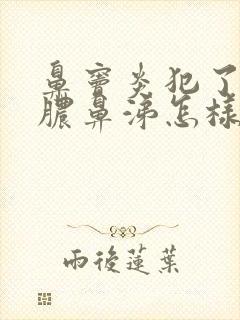 鼻窦炎犯了
脓鼻涕怎樣
雨後蓮葉